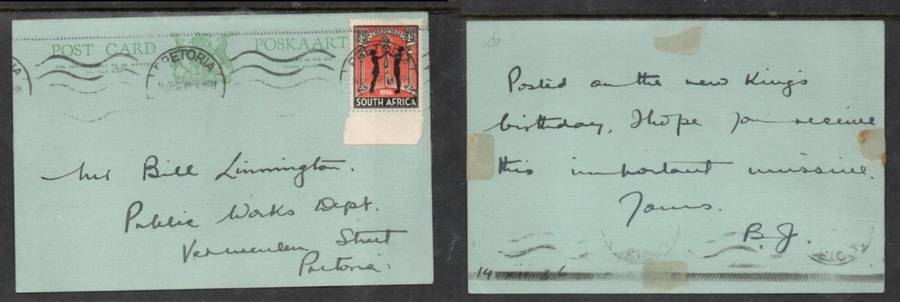 POST CARD
POSKAART
PRETORIA
1936
SOUTH AFRICA
Mr Bill Linnington.
Public Works Dept.
Vermeulen Street
Pretoria.
Posted on the new Kings
birthday. I hope you receive
this important missive.
Yours.
B.J.
14 XII 36